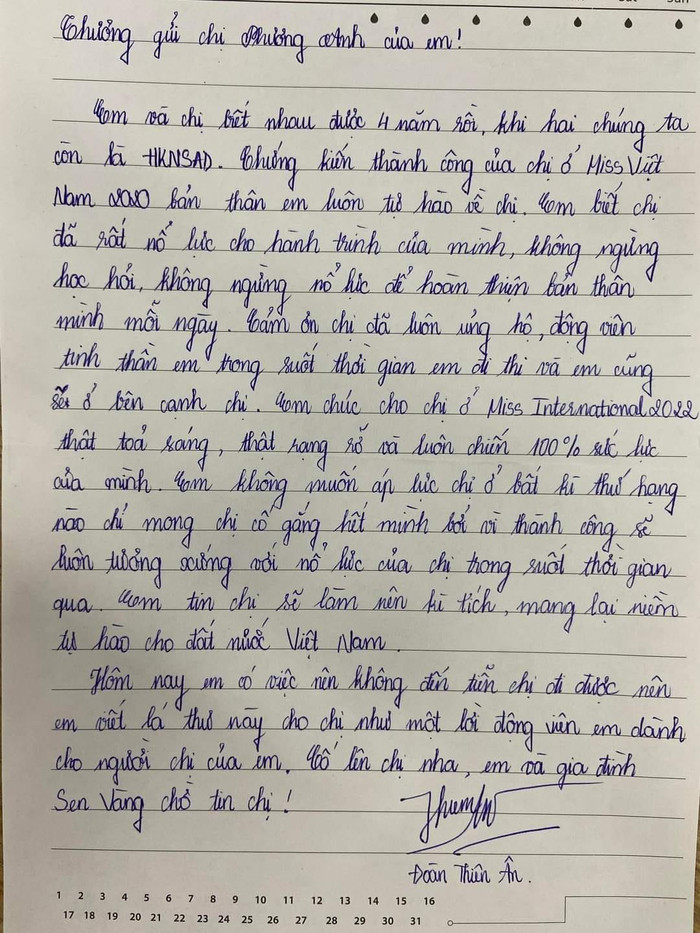 Thương gửi chị Phương Anh của em!
Em và chị biết nhau được 4 năm rồi, khi hai chúng ta
còn là HKNSAD. Chứng kiến thành công của chị ở Miss Việt
Nam 2020 bản thân em luôn tự hào về chị. Em biết chị
đã rất nổ lực cho hành trình của mình, không ngừng
học hỏi, không ngừng nổ lực để hoàn thiện bản thân
mình mỗi ngày. Cảm ơn chị đã luôn ủng hộ, động viên
tinh thần em trong suốt thời gian em đi thi và em cũng
sẽ ở bên cạnh chị. Em chúc cho chị ở Miss International 2022
thật toả sáng, thật rạng rỡ và luôn chiến 100% sức lực
của mình. Em không muốn áp lực chị ở bất kì thứ hạng
nào chỉ mong chị cố gắng hết mình bởi vì thành công sẽ
luôn tương xứng với nổ lực của chị trong suốt thời gian
qua. Em tin chị sẽ làm nên kì tích, mang lại niềm
tự hào cho đất nước Việt Nam.
Hôm nay em có việc nên không đến tiễn chị đi được nên
em viết lá thư này cho chị như một lời động viên em dành
cho người chị của em. Cố lên chị nha, em và gia đình
Sen Vàng chờ tin chị!
Đoàn Thiên Ân.
1 2 3 4 5 6 7 8 9 10 11 12 13 14 15 16
17 18 19 20 21 22 23 24 25 26 27 28 29 30 31